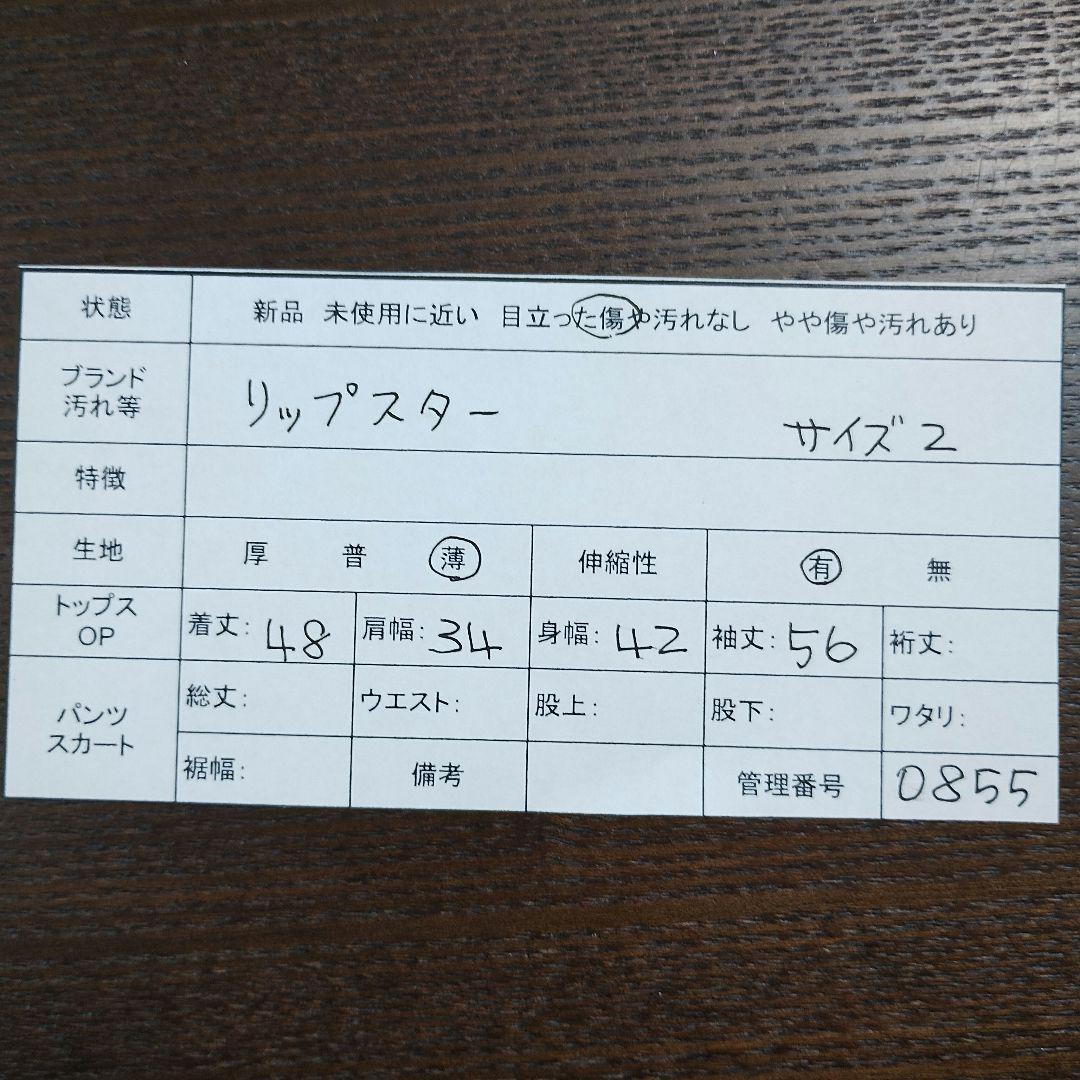 状態 新品 未使用に近い 目立った傷や汚れなし やや傷や汚れあり
ブランド
汚れ等
リップスター
サイズ2
特徴
生地 厚 普 薄 伸縮性 有 無
トップス
OP
着丈: 48 肩幅: 34 身幅: 42 袖丈: 56 裄丈:
パンツ
スカート
総丈: ウエスト: 股上: 股下: ワタリ:
裾幅: 備考 管理番号 0855